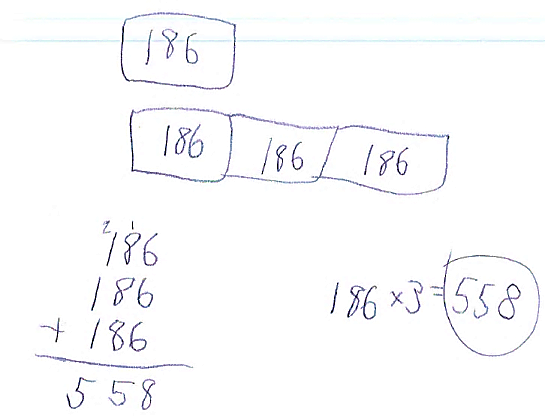 186
186 186 186
2 1
186
186
+ 186
558
186 × 3 = 558